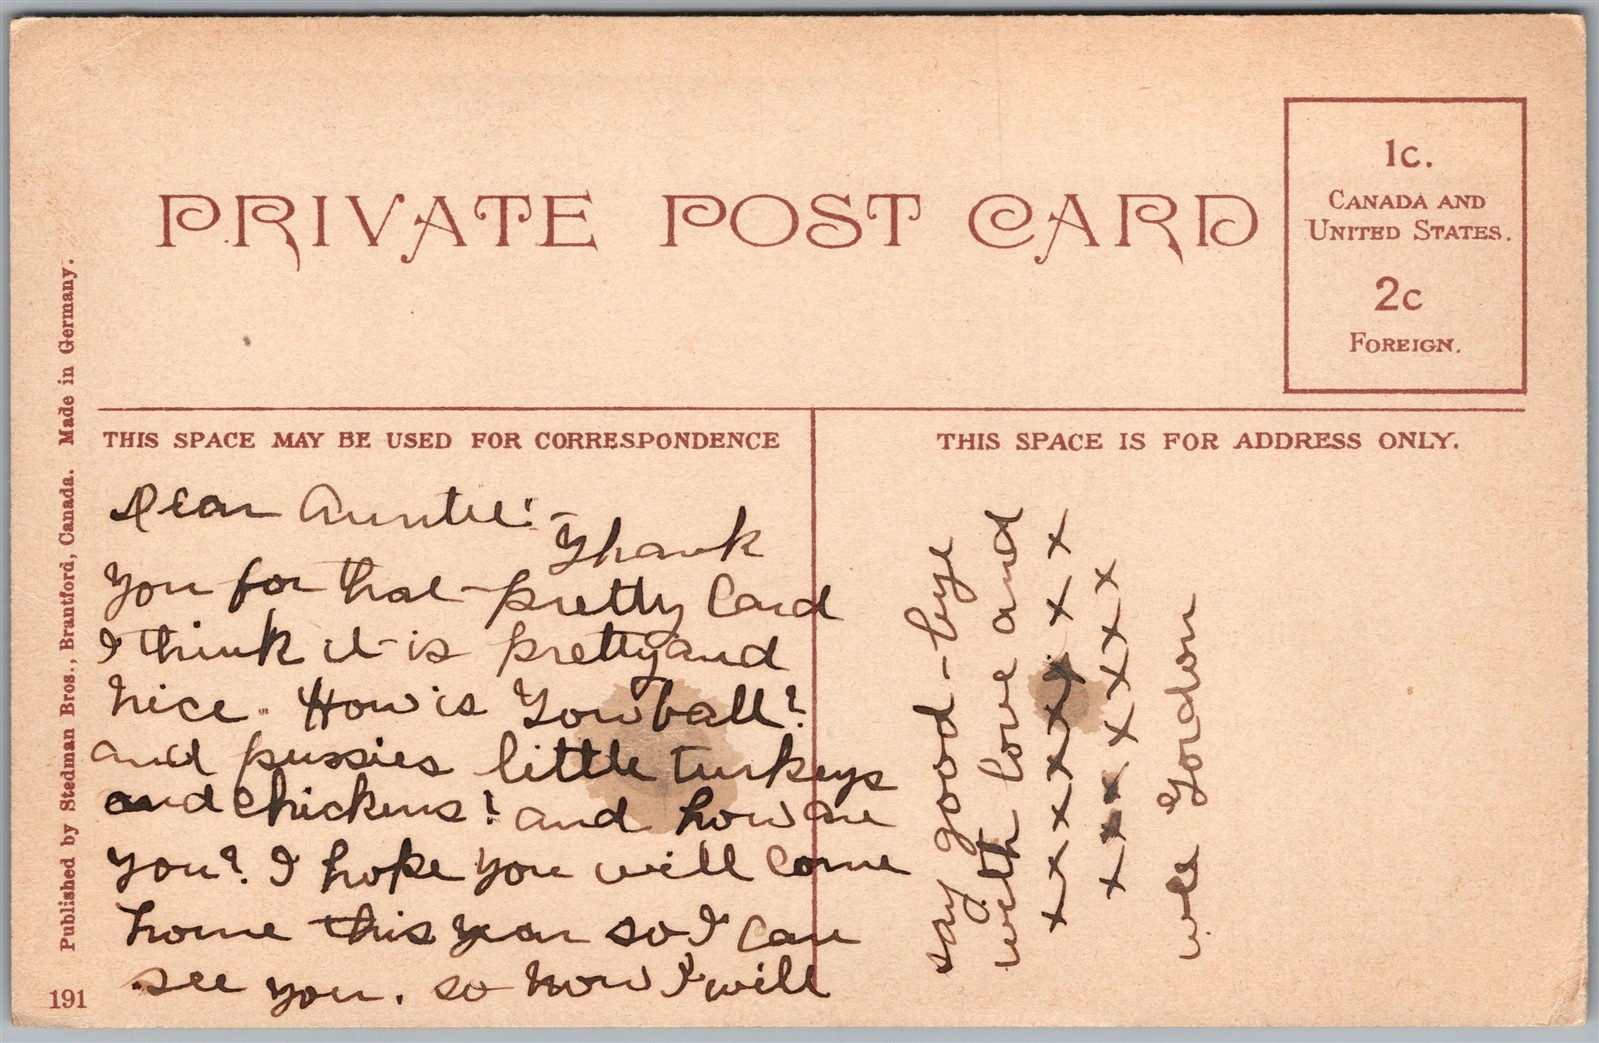 PRIVATE POST CARD
1c.
CANADA AND
UNITED STATES.
2c
FOREIGN.
THIS SPACE MAY BE USED FOR CORRESPONDENCE
THIS SPACE IS FOR ADDRESS ONLY.
Dear Auntie:-
Thank
you for that pretty Card
I think it is pretty and
nice. How is Yowball?
and pussies little turkeys
and chickens? and how are
you? I hope you will come
home this year so I can
see you. so now I will
say good-bye
with love and
x x x x x x x x x
x x x x x x x
Gordon
Published by Stedman Bros., Brantford, Canada. Made in Germany.
191